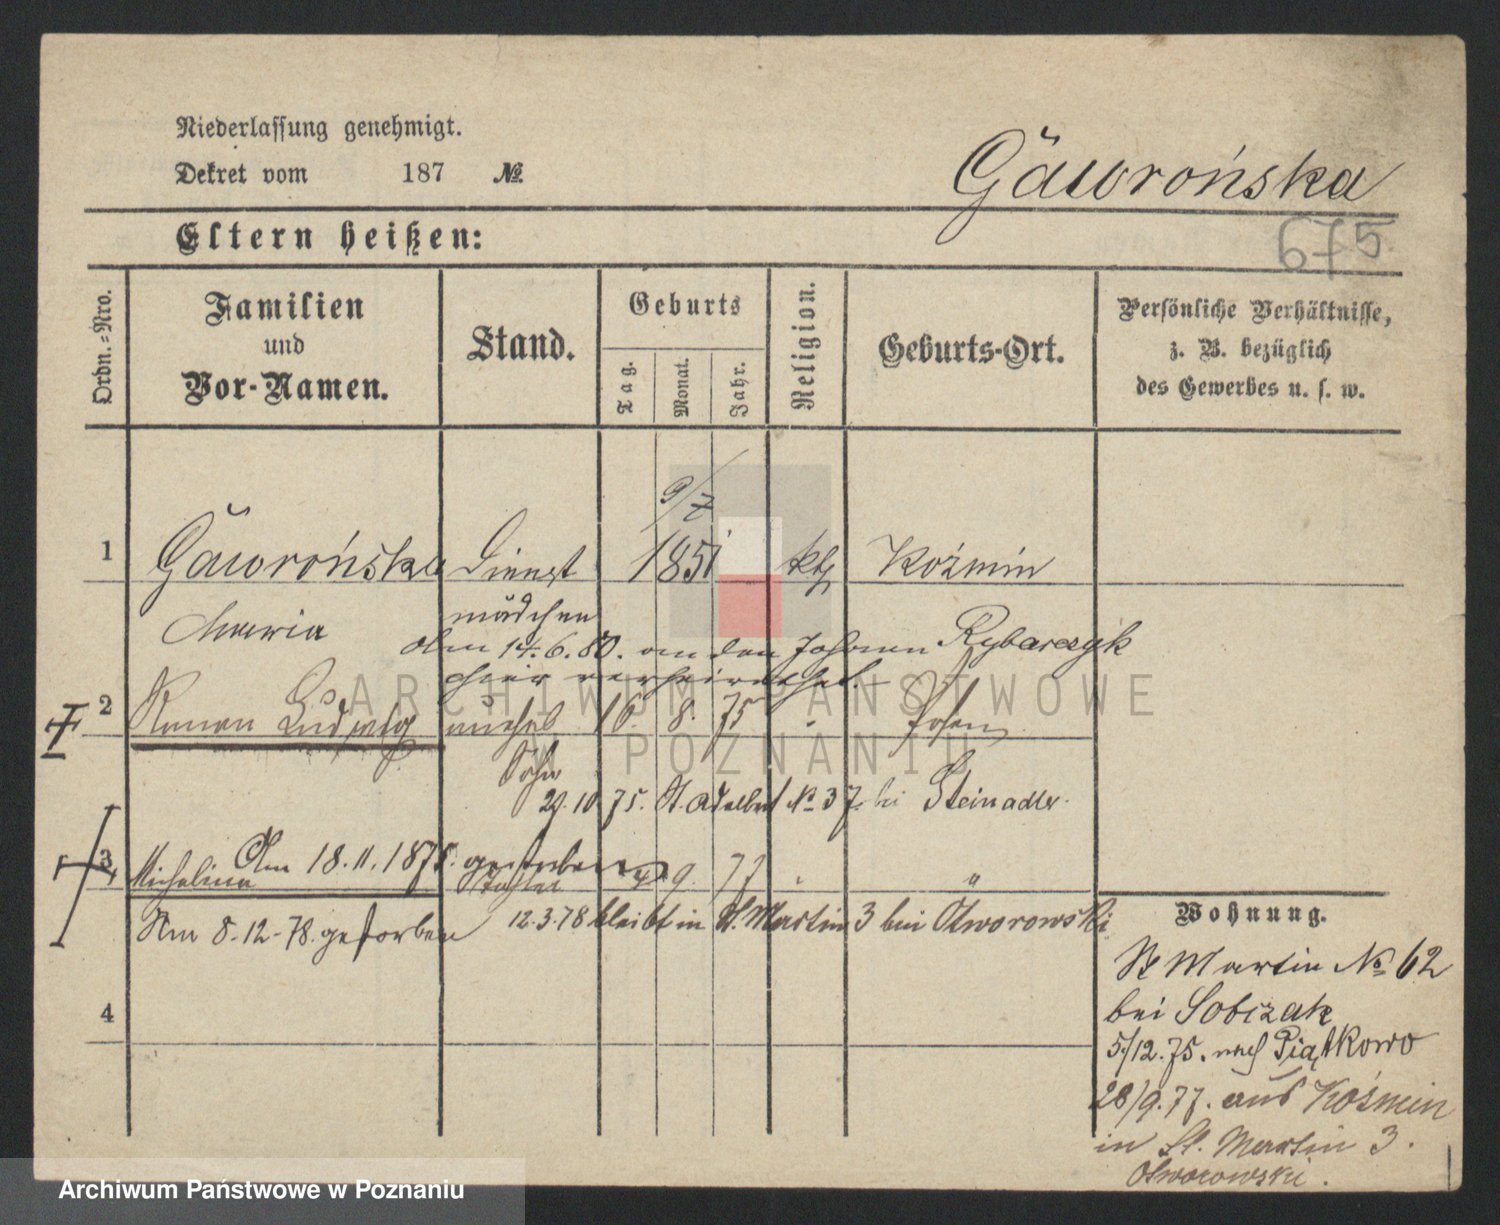 Niederlassung genehmigt.
Dekret vom 187 №
Gaworońska
Eltern heißen:
675
Ordn.-Nro.
Familien
und
Vor-Namen.
Stand.
Geburts
Tag.
Monat.
Jahr.
Religion.
Geburts-Ort.
Persönliche Verhältnisse,
z. B. bezüglich
des Gewerbes u. s. w.
9/7
1 Gaworońska Dienst 1851 kth Koźmin
Maria mädchen
Am 14.6.80. an den Johann Rybarczyk
hier verheirathet.
2 Roman Ludwig unehel 16. 8. 75 " Posen
Sohn
29.10.75. St. Adalbert № 37. bei Steinadler.
Am 18.11.1875. gestorben
3 Michalina Tochter 9 77 " "
12.3.78 bleibt in St. Martin 3 bei Otworowski
Am 8.12.78. gestorben
4
Wohnung.
St Martin № 62
bei Sobczak
5/12.75. nach Piątkowo
28/9.77. aus Koźmin
in St. Martin 3.
Otworowski.
ARCHIWUM PAŃSTWOWE
W POZNANIU
Archiwum Państwowe w Poznaniu